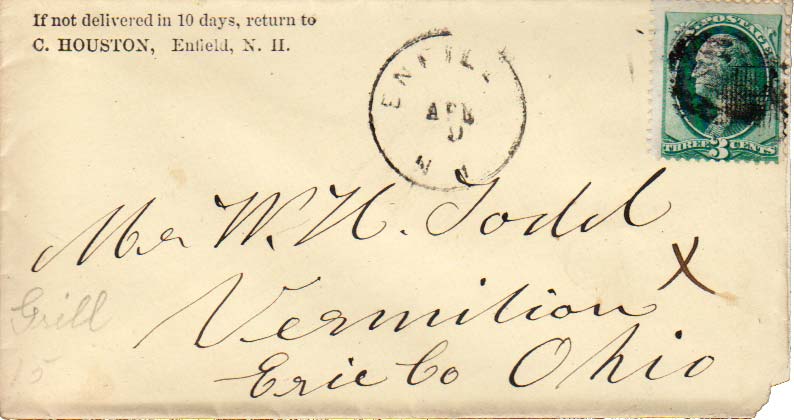 If not delivered in 10 days, return to
C. HOUSTON, Enfield, N. H.
ENFIEL
APR
9
N H
POSTAGE
THREE 3 CENTS
Mr W. H. Todd
Vermilion X
Erie Co Ohio
Grill
15